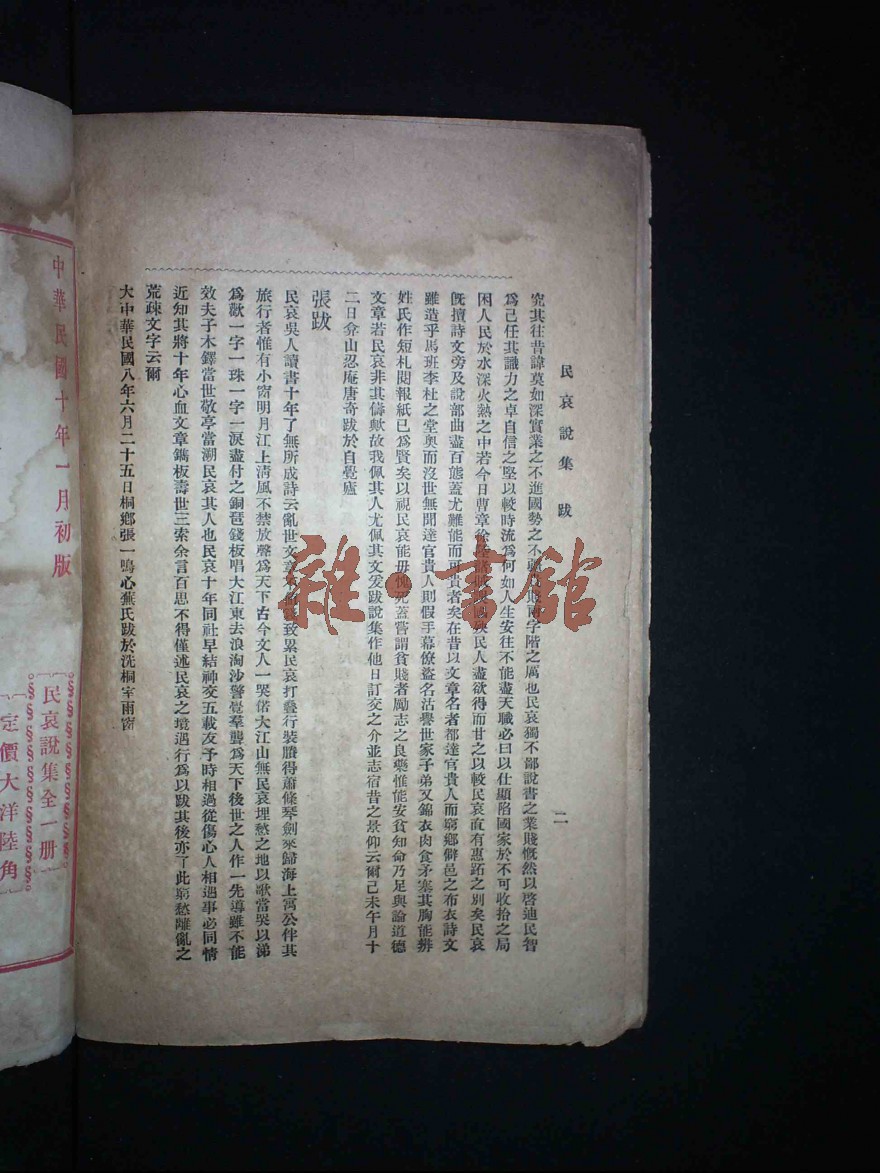 民哀說集　跋　二
究其往昔諱莫如深實業之不進國勢之不　字階之厲也民哀獨不鄙說書之業賤慨然以啓迪民智
爲己任其識力之卓自信之堅以較時流爲何如人生安往不能盡天職必曰以仕顯陷國家於不可收拾之局
困人民於水深火熱之中若今日曹章　國　民人盡欲得而甘之以較民哀直有惠跖之別矣民哀
旣擅詩文旁及說部曲盡百態蓋尤難能而可貴者矣在昔以文章名者都達官貴人而窮鄉僻邑之布衣詩文
雖造乎馬班李杜之堂奧而沒世無聞達官貴人則假手幕僚盜名沽譽世家子弟又錦衣肉食矛塞其胸能辨
姓氏作短札閱報紙已爲賢矣以視民哀能毋愧死蓋嘗謂貧賤者勵志之良藥惟能安貧知命乃足與論道德
文章若民哀非其儔歟故我佩其人尤佩其文爰跋說集作他日訂交之介並志宿昔之景仰云爾己未午月十
二日弇山忍庵唐奇跋於自覺廬
張跋
民哀吳人讀書十年了無所成詩云亂世文章　致累民哀打疊行裝賸得蕭條琴劍來歸海上寓公伴其
旅行者惟有小窗明月江上淸風不禁放聲爲天下古今文人一哭偌大江山無民哀埋愁之地以歌當哭以涕
爲歡一字一珠一字一淚盡付之銅琶錢板唱大江東去浪淘沙警覺羣聾爲天下後世之人作一先導雖不能
效夫子木鐸當世敬亭當溯民哀其人也民哀十年同社早結神交五載友予時相過從傷心人相遇事必同情
近知其將十年心血文章鐫板壽世三索余言百思不得僅述民哀之境遇行爲以跋其後亦了此窮愁離亂之
荒疎文字云爾
大中華民國八年六月二十五日桐鄉張一鳴心蕪氏跋於洗桐室雨窗
中華民國十年一月初版
民哀說集全一册
定價大洋陸角
雜·書館